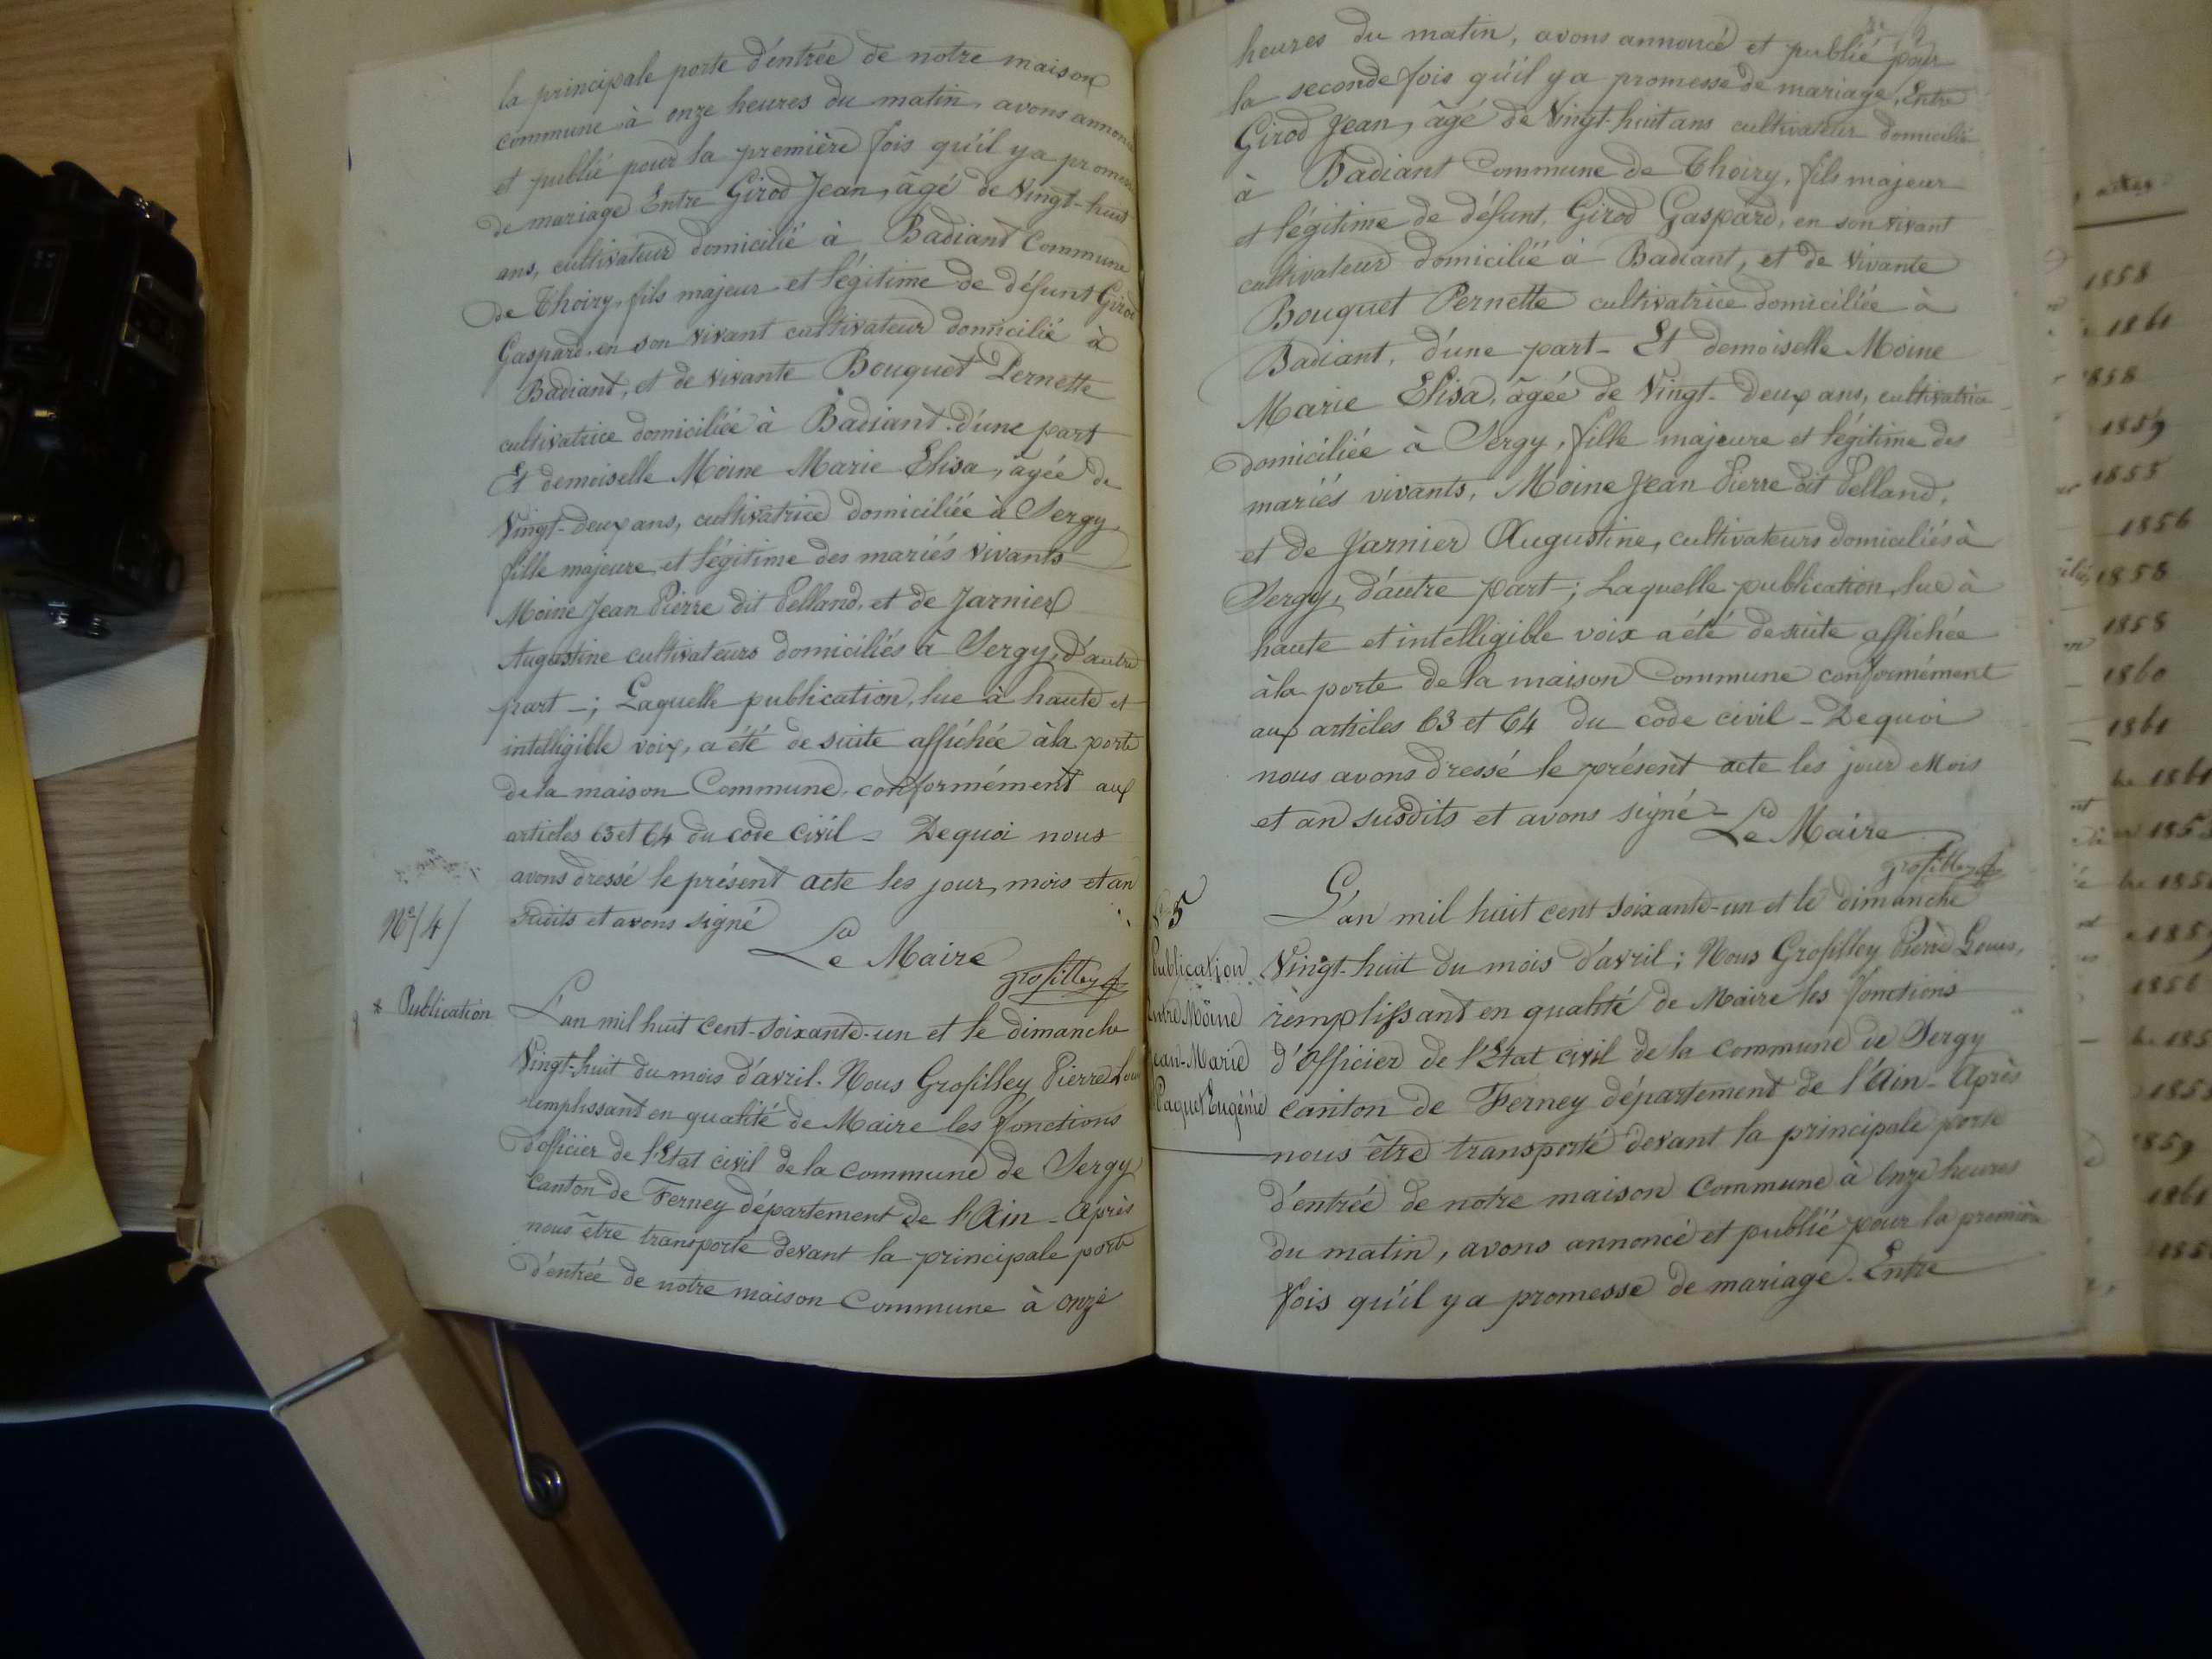 la principale porte d'entrée de notre maison
commune à onze heures du matin, avons annoncé
et publié pour la première fois qu'il y a promesse
de mariage Entre Girod Jean, âgé de Vingt-huit
ans, cultivateur domicilié à Badiant Commune
de Thoiry, fils majeur et légitime de défunt Girod
Gaspard, en son vivant cultivateur domicilié à
Badiant, et de vivante Bouquet Pernette
cultivatrice domiciliée à Badiant d'une part
Et demoiselle Moine Marie Elisa, agée de
Vingt-deux ans, cultivatrice domiciliée à Sergy
fille majeure et légitime des mariés vivants
Moine Jean Pierre dit Pelland, et de Jarnier
Augustine cultivateurs domiciliés à Sergy, d'autre
part -; Laquelle publication, lue à haute et
intelligible voix, a été de suite affichée à la porte
de la maison Commune, conformément aux
articles 63 et 64 du code civil - De quoi nous
avons dressé le présent acte les jour, mois et an
susdits et avons signé
Le Maire
Grosfilley
N° 4
* Publication
L'an mil huit cent-soixante-un et le dimanche
Vingt-huit du mois d'avril. Nous Grosfilley Pierre Louis
remplissant en qualité de Maire les fonctions
d'officier de l'Etat civil de la commune de Sergy
Canton de Ferney département de l'Ain - Après
nous être transporté devant la principale porte
d'entrée de notre maison Commune à onze
heures du matin, avons annoncé et publié pour
la seconde fois qu'il y a promesse de mariage, Entre
Girod Jean, âgé de Vingt-huit ans cultivateur domicilié
à Badiant Commune de Thoiry, fils majeur
et légitime de défunt, Girod Gaspard, en son vivant
cultivateur domicilié à Badiant, et de Vivante
Bouquet Pernette cultivatrice domiciliée à
Badiant, d'une part - Et demoiselle Moine
Marie Elisa, âgée de Vingt-deux ans, cultivatrice
domiciliée à Sergy, fille majeure et légitime des
mariés vivants, Moine Jean Pierre dit Pelland,
et de Jarnier Augustine, cultivateurs domiciliés à
Sergy, d'autre part -; Laquelle publication, lue à
haute et intelligible voix a été de suite affichée
à la porte de la maison Commune conformément
aux articles 63 et 64 du code civil - De quoi
nous avons dressé le présent acte les jour Mois
et an susdits et avons signé -
Le Maire
Grosfilley
N° 5
Publication
Entre Moine
Jean-Marie
Paquet Eugénie
L'an mil huit cent soixante-un et le dimanche
Vingt-huit du mois d'avril; Nous Grosfilley Pierre Louis,
remplissant en qualité de Maire les fonctions
d'officier de l'Etat civil de la commune de Sergy
canton de Ferney département de l'Ain - Après
nous être transporté devant la principale porte
d'entrée de notre maison Commune à Onze heures
du matin, avons annoncé et publié pour la première
fois qu'il y a promesse de mariage. Entre
1858
1861
1858
1859
1855
1856
1858
1858
1860
1861
1861